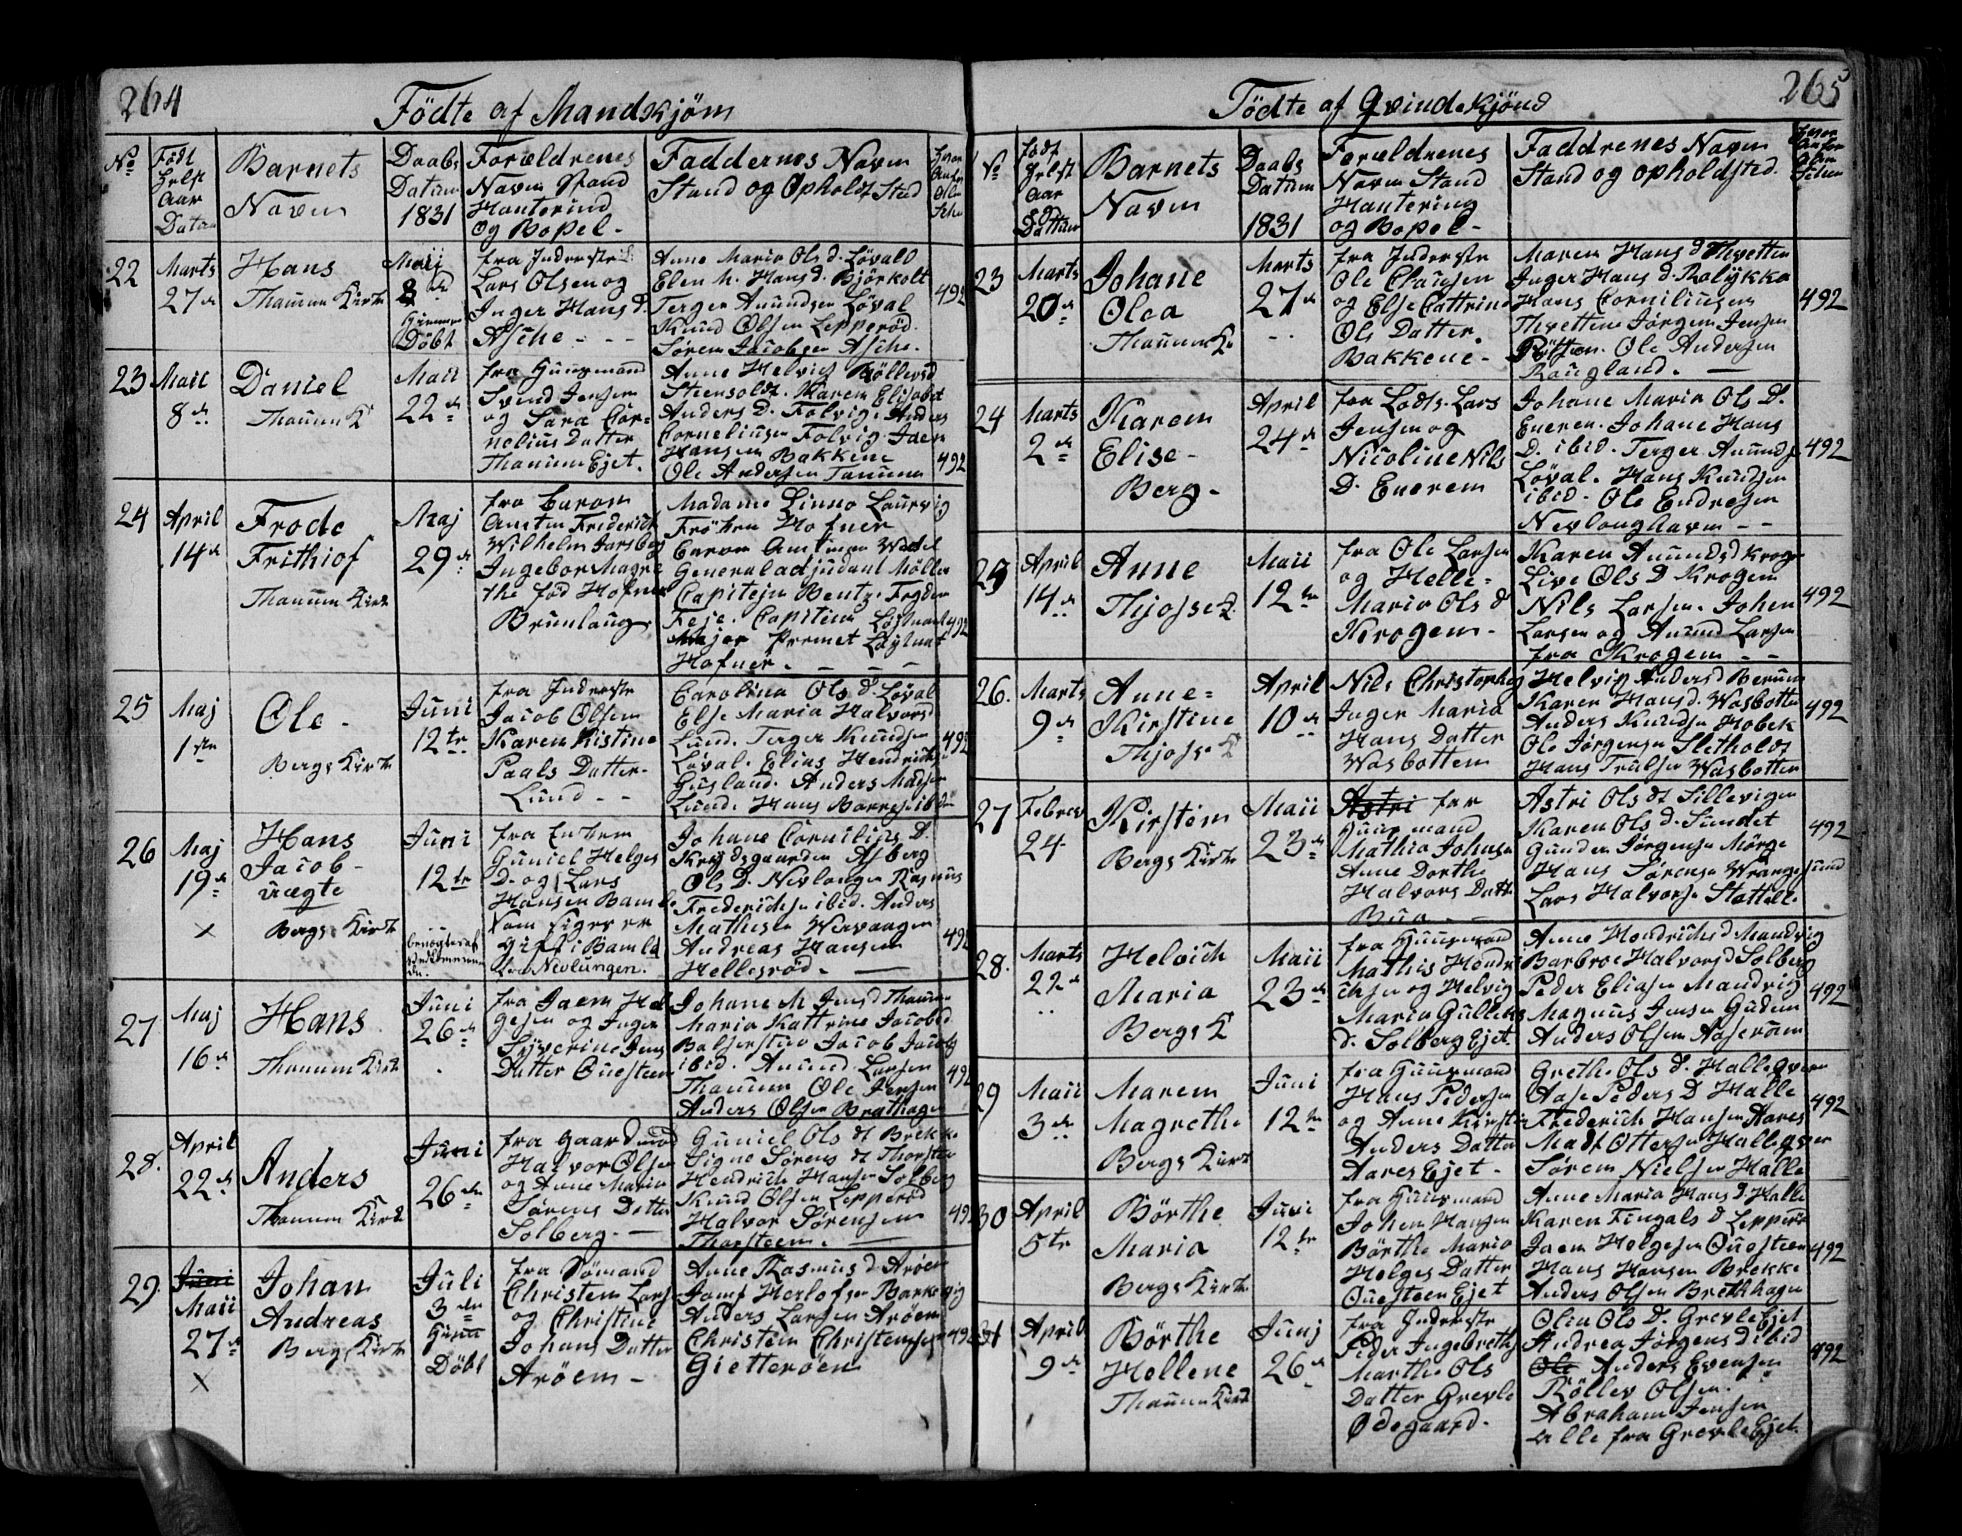 264
Födte af Mandkjöm
No
Födt
Helst
Aar
Datum
Barnets
Navn
Daabs
Datum
1831
Forældrenes
Navn Stand
Hantering
og Bopel-
Faddernes Navn
Stand og Opholdt Sted
22
Marts
27de
Hans
Thanum Kirke
Maij
Hiemme
Döbt
fra Inderste
Lars Olsen og
Inger Hans D.
Asche - - -
Anne Maria Ols D. Løvald
Elen M. Hans d. Björkolt
Terger Anundsen Løval
Knud Olsen Lepperöd.
Sören Jacobsen Asche.
492
23
Maii
8de
Daniel
Thanum K
Maii
22de
fra Huusmand
Svend Jensen
og Sara Cor=
nelius Datter
Thanum Ejet.
Anne Helvig Röllevsd
Steensolt. Karen Elisabet
Anders D. Folvig. Anders
Corneliusen Folvig. Jaen
Hansen Bakkene
Ole Andersen Tanum
492
24
April
14de
Frode
Frithiof
Thanum Kirke
Maj
29de
fra Baron
Amtm Friderich
Wilhelm Jarsberg
Ingebor Magre
the föd Hofner
Brunlaug
Madame Linno Laurvig
Fröken Hofner
Baron Amtman Wedel
General adjudant Möller
Capitejn Bentz. Fogden
Feje. Capitein Løjtnant
Major Premet Løjtnat
Hofner. - - -
492
25
Maj
1ste
Ole -
Bergs Kirke
Juni
12te
fra Inderste
Jacob Olsen
Karen Kistine
Paals Datter-
Lund - -
Carolina Ols d. Løval
Else Maria Halvorsd
Lund. Terger Knudsen
Løval. Elias Hendrichs
Gusland. Anders Madsen
Lund. Hans Borres ibidem
492
26
Maj
19de
x
Hans
Jacob-
uægte
Bergs Kirke
Juni
12te
fra Enkem
Guniel Helges
D. og Lars
Hansen Bamle
som siges er
gift i Bamld
fra Nevlungen.
Johane Cornilius D.
Krydsgaarden Asberg
Ols D. Nevlongen Rasmus
Frederichsen ibid. Anders
Mathisen Wervaagen
Andreas Hansen
Hellesröd. -
492
27
Maj
16de
Hans
Thanum Kirke
Juni
26de
fra Jaen Hel
gesen og Inger
Syverine Jens
Datter Ouesteen
Johane M Jens d Thanum
Maria Kattrine Jacobsd
Balserstue Jacob Jacobs
ibid. Anund Larsen
Thanum Ole Jensen
Anders Olsen Brathagen
492
28.
April
22de
Anders
Thanum Kirk
Juni
26de
fra Gaardmand
Halvor Olsen
og Anne Maria
Sörens Datter
Solberg. -
Guniel Ols dt Brekke
Signe Sörens dt Thorsten
Hendrich Hansen Solberg
Knud Olsen Lepperöd
Halvor Sörensen
Thorsteen. -
492
29.
Juni
Maii
27de
x
Johan
Andreas
Bergs Kirke
Juli
3de
Döbt
fra Sömand
Christen Larsen
og Christine
Johans Datter
Aröem -
Anne Rasmus d Aröen
Jans Herlofsen Barkevig
Anders Larsen Aröem
Christen Christensen
Gietteröem
492
265
Födte af Qvindekjönd
No
Födt
Helst
Aar
og
Dattum
Barnets
Navn
Daabs
Datum
1831
Forældrenes
Navn Stand
Hantering
og Bopel -
Faddrenes Navn
Stand og opholdsted.
23
Marts
20de
Johane
Olea
Thanum K
Marts
27de
fra Inderste
Ole Clausen
og Else Cattrine
Ols Datter.
Bakkene -
Maren Hans d Thvetten
Inger Hans d. Rolykka
Hans Corniliusen
Thvetten Jörgen Jensen
Ole Andersen
Rougland. -
492
24
Marts
2de
Karem
Elise-
Berg-
April
24de
fra Lodts. Lars
Jensen og
Nicoline Nils
D. Enerem
Johane Maria Ols D.
Eneren. Johane Hans
D. ibid. Terger Anunds
Løval. Hans Knudsen
ibid. Ole Endresen
Nevlonghavn - -
492
25
April
14de
Anne
Thjose K
Maii
12te
fra Ole Larsen
og Helle=
Maria Ols d
Krogem-
Karen Anundsd Kroge
Live Ols D Krogem
Nils Larsen. Johen
Larsen og Anund Larsen
fra Krogem - -
492
26.
Marts
9de
Anne=
Kirstine
Thjose K
April
10de
Nils Christophes
Inger Maria
Hans Datter
Wasbottem
Helvig Anders d Berum
Karen Hans d. Wasbotten
Anders Knudsen Hobek
Ole Jörgensen Sletholdt
Hans Trulsen Wasbotten
492
27
Febrev
24
Kirstem
Bergs Kirke
Maii
23de
Astri fra
Huusmand
Mathia Johnsen
Anne Dorthe
Halvors Datt
Bua - -
Astri Ols dt Sillevigen
Karen Ols d. Sundet
Gunder Jörgensen Mörge
Hans Sörensen Wrangesund
Lars Halvorsen Stattelle
492
28.
Marts
22de
Helvich
Maria
Bergs K
Maii
23de
fra Huusmand
Mathis Hendri
chsen og Helvig
Maria Gulleks
d. Solberg Ejet.
Anne Hendrichs d Mandvig
Barbroe Halvors d Solberg
Peder Eliasen Mandvig
Magnus Jensen Gudem
Anders Olsen Aaseröm
492
29
Maii
3de
Marem
Magrethe
Bergs Kirke
Juni
12te
fra Huusmand
Hans Pedersen
og Anne Kirstin
Anders Datter
Aares Ejet-
Grethe Ols d. Halleqvern
Aase Peders D Halle
Frederich Hansen Aares
Madt Ottersen Halleqver
Sörem Nielsen Halle
492
30
April
5te
Börthe
Maria
Bergs Kirke
Juni
12te
fra Huusmand
Johem Hansen
Börthe Maria
Helges Datter
Ouesteen Ejet
Anne Maria Hans d. Halle
Karen Fingals d Lepperö
Jaen Helgesen Ouesteen
Hans Hansen Brekke
Anders Olsen Brethhagen
492
31
April
9de
Börthe
Hellene
Thanum Kirk
Junj
26de
fra Inderste
Peder Ingebreths
Marthe Ols
Datter Grevle
Ödegaard.
Olia Ols D. Grevle Ejet
Andrea Jörgens d ibid
Ole Anders Evensen
Röllev Olsen.
Abraham Jensen
alle fra Grevle Ejet.
492